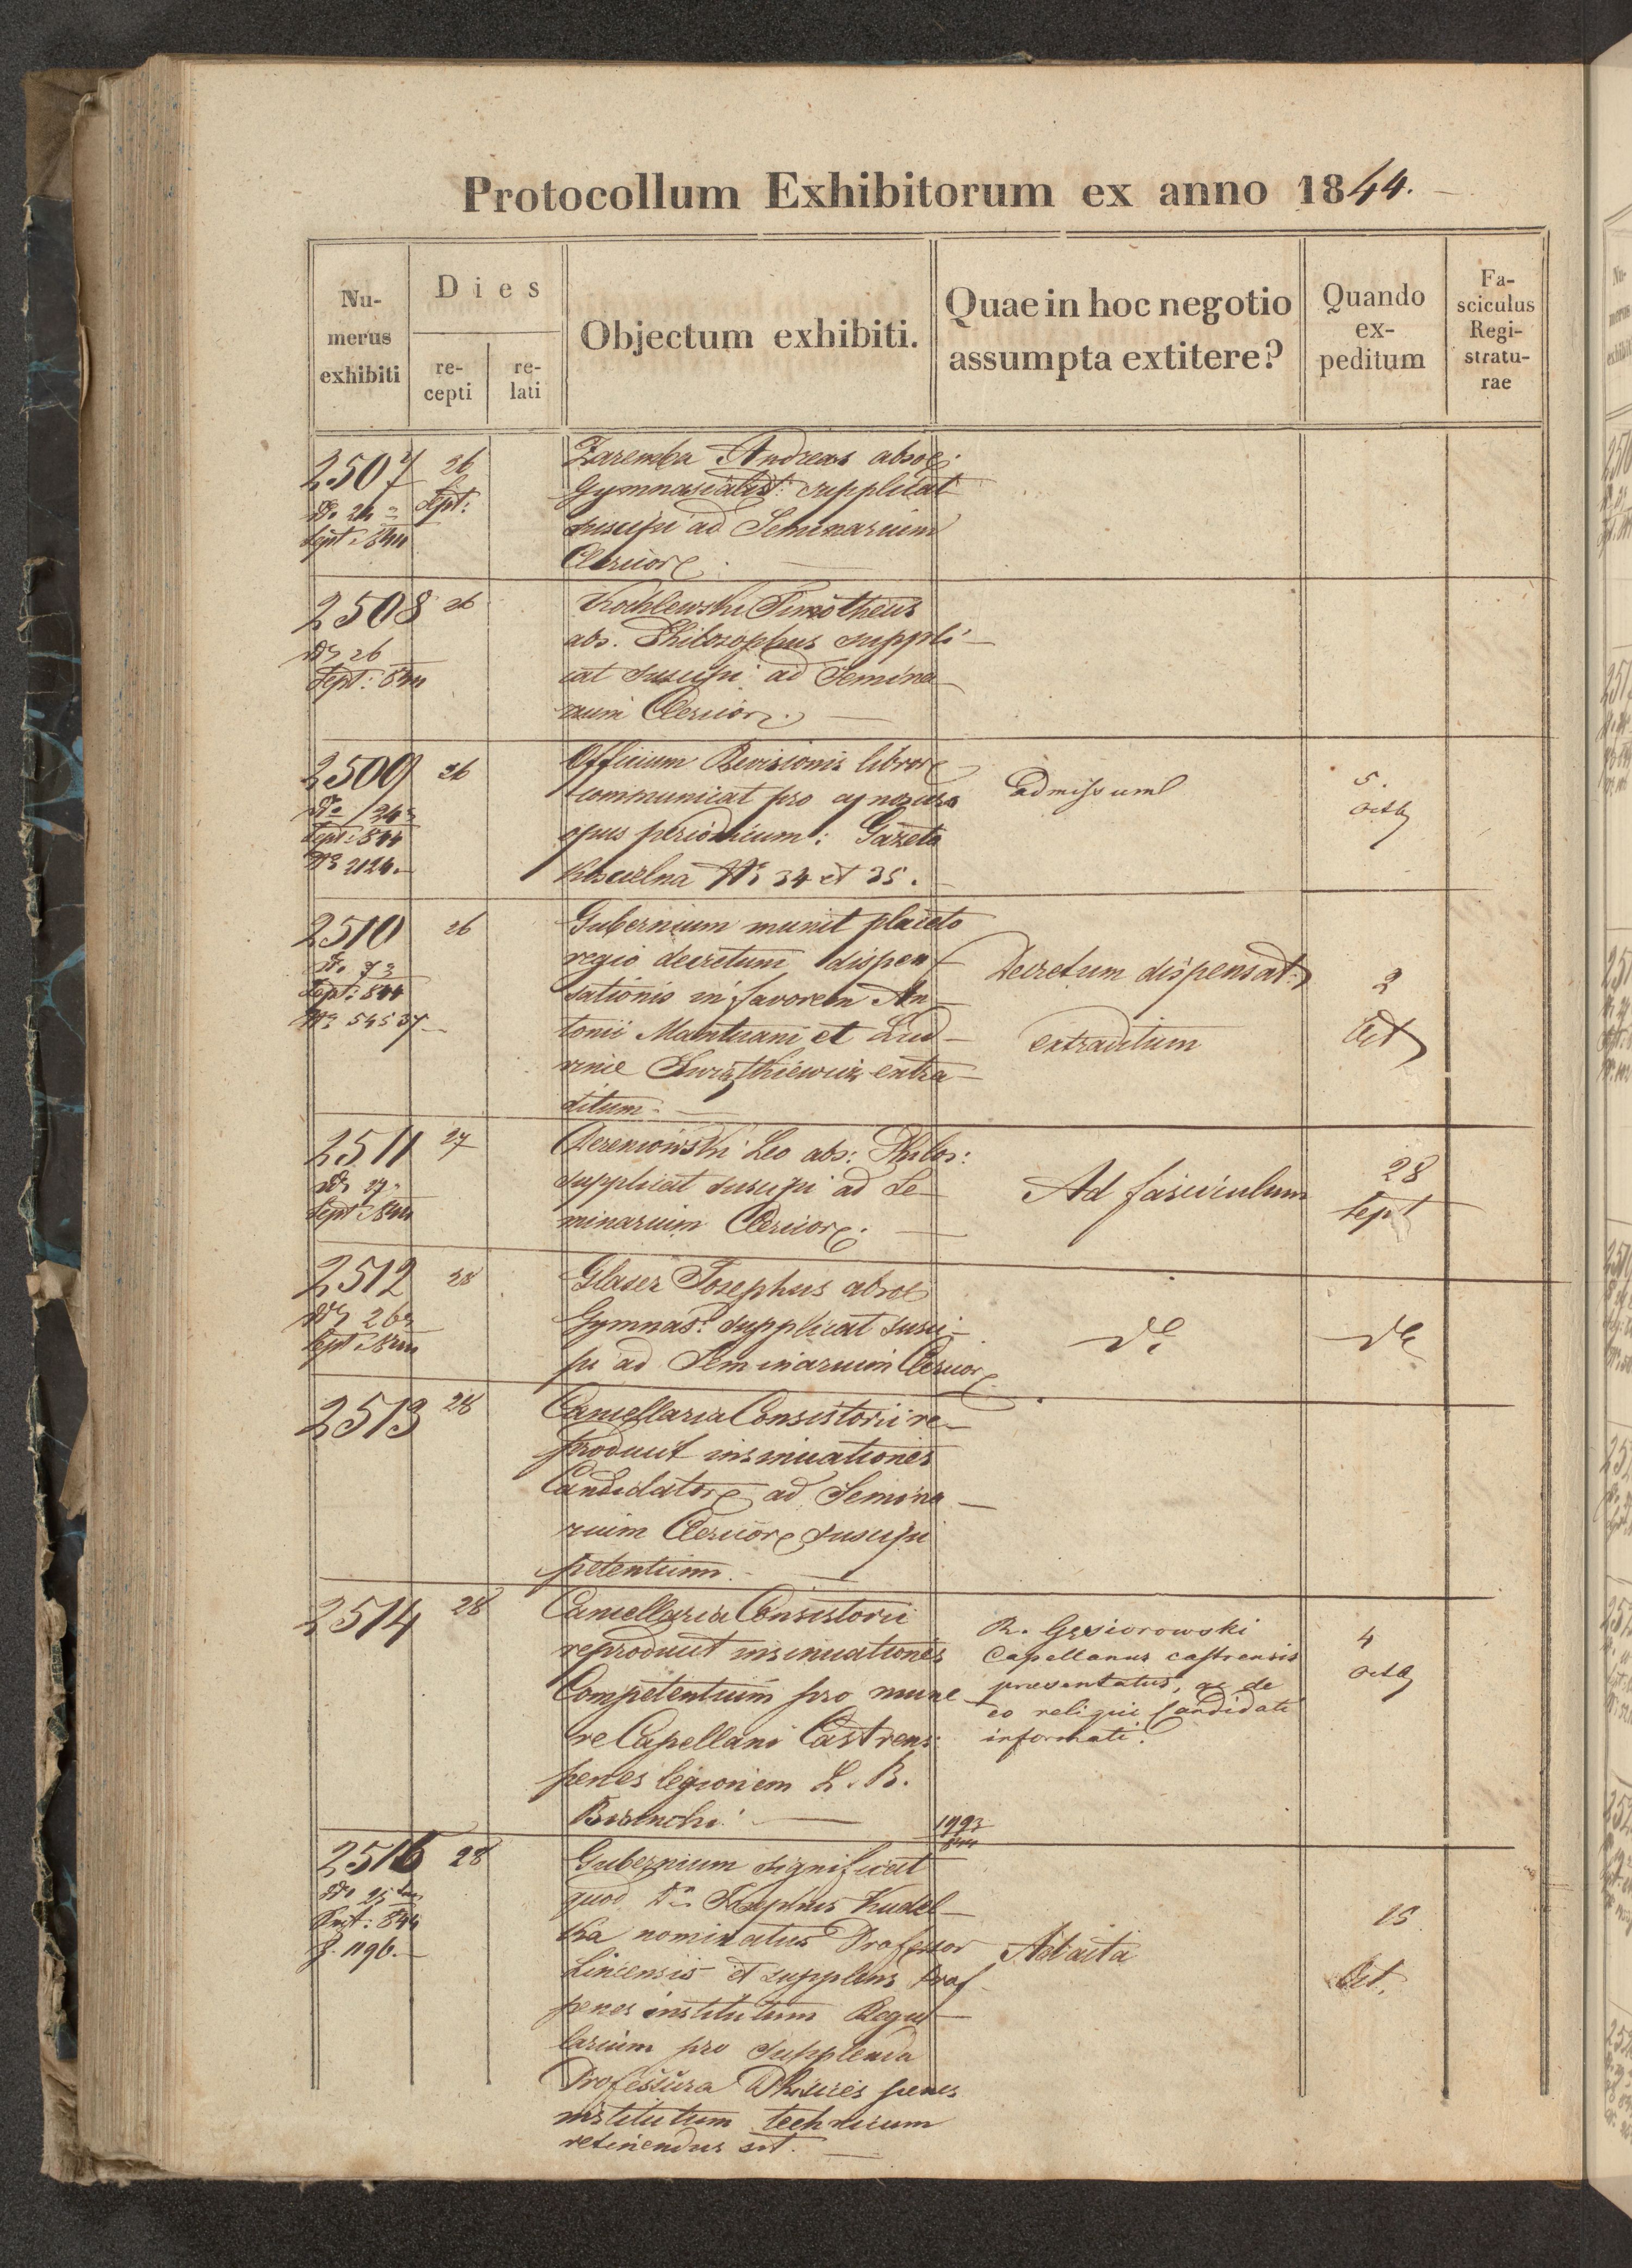 Protocollum Exhibitorum ex anno 1844.
Nu-
merus
exhibiti
Dies
re-
cepti
re-
lati
Objectum exhibiti.
Quae in hoc negotio
assumpta extitere?
Quando
ex-
peditum
Fa-
sciculus
Regi-
stratu-
rae
2507
26
Sept:
Sept: 844
Zaremba Andreas absol:
Gymnasialist: supplicat
suscipi ad Seminarium
Clericor
2508
26
26
Sept: 844
Timotheus
abs. Philosophus suppli-
cat suscipi ad Semina-
rium Clericor.
2509
26
24
Sept: 844
No 2126.
Officium Revisionis libror
communicat pro cynosura
opus periodicum: Gazeta
Koscielna No 34 et 35.
admissum
5.
Octb
2510
26
Sept: 844
No 54537
Gubernium munit placeto
regio decretum dispen-
sationis in favorem An-
tonii Mantuani et Lud-
extra-
ditum.
Decretum dispensat:
extraditum
2
Oct
2511
27
27
Sept: 844
Leo abs: Philos:
supplicat suscipi ad Se-
minarium Clericor.
Ad fasciculum
28
Sept
2512
28
26
Sept: 844
Glaser Josephus absol
Gymnas: supplicat susci-
pi ad Seminarium Clericor
2513
28
Cancellaria Consistorii re-
producit insinuationes
Candidator ad Semina-
rium Clericor suscipi
petentium.
2514
28
Cancellaria Consistorii
reproducit insinuationes
Competentium pro mune-
re Capellani Castrens:
penes legionem L. B.
Bianchi.
R. Gąsiorowski
Capellanus castrensis
praesentatus, ac de
eo reliqui Candidati
informati.
4
Octb
2516
28
25
844
1196.
1993
844
Gubernium significat
quod Josephus Kudel-
ka nominatus Professor
Lincensis et supplens Prof
penes institutum Regu-
larium pro supplenda
Professura Phisices penes
institutum technicum
retinendus sit.
Ad acta
15
Oct.